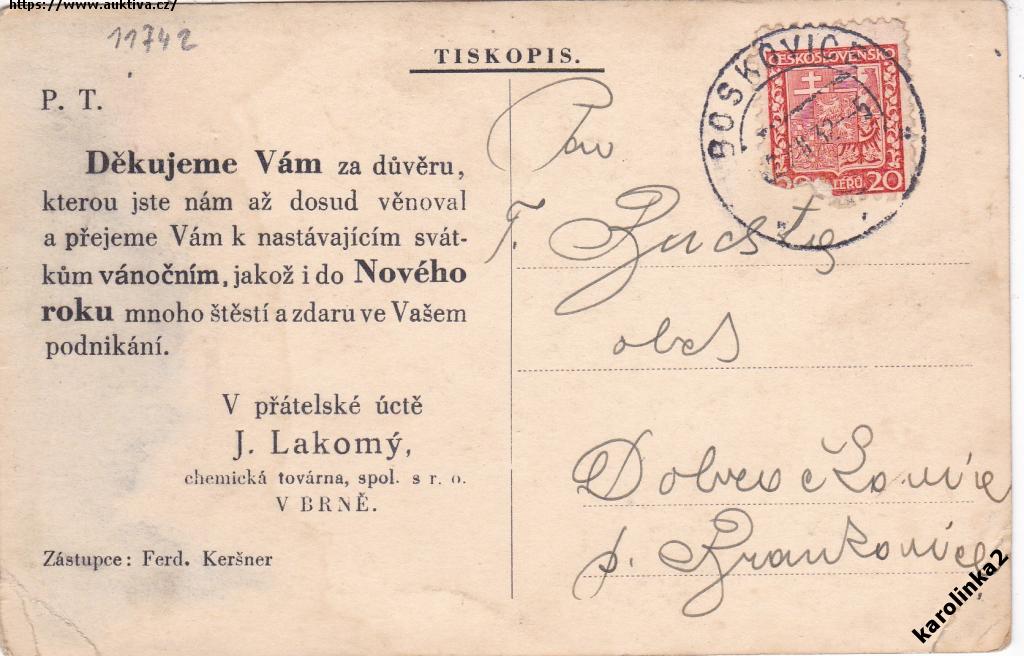 https://www.auktiva.cz/
11742
TISKOPIS.
P. T.
Děkujeme Vám za důvěru,
kterou jste nám až dosud věnoval
a přejeme Vám k nastávajícím svát-
kům vánočním, jakož i do Nového
roku mnoho štěstí a zdaru ve Vašem
podnikání.
V přátelské úctě
J. Lakomý,
chemická továrna, spol. s r. o.
V BRNĚ.
Zástupce: Ferd. Keršner
BOSKOVICE
ČESKOSLOVENSKO
20
Pan
F.
obch
Dobročkovice
p. Brankovice
karolinka2